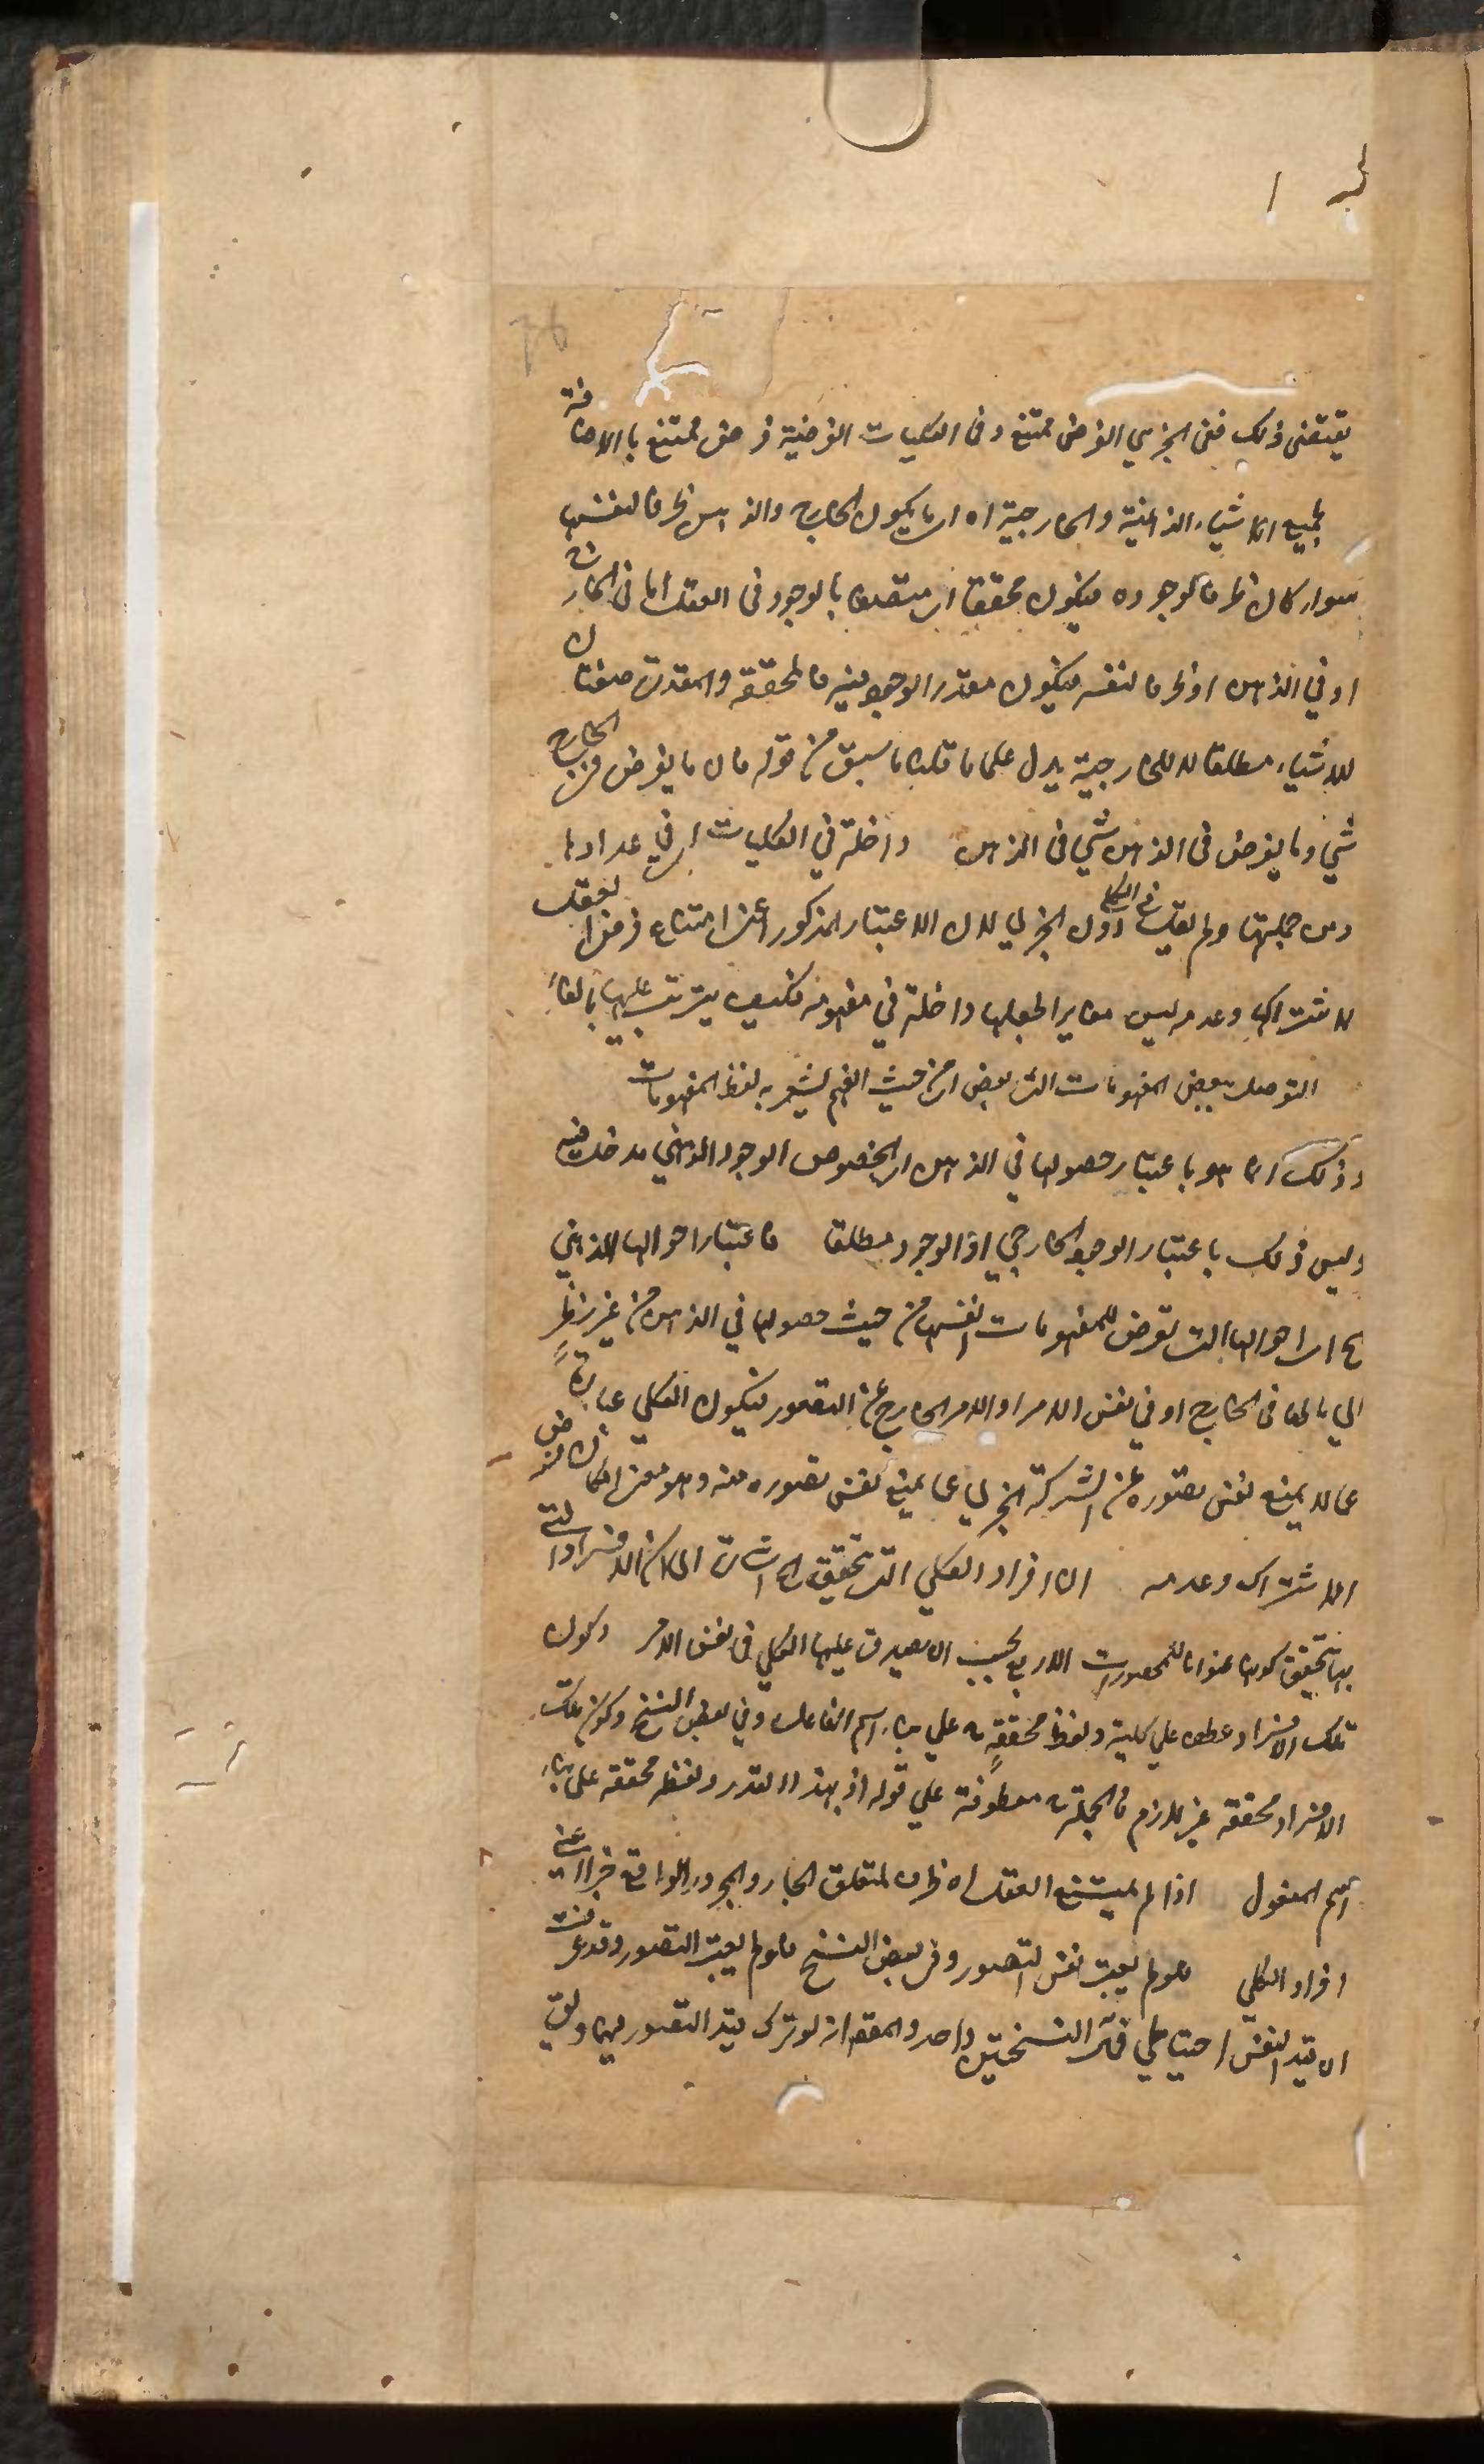 76
يقتضى ذلك ففى الجزئي الفرض ممتنع وفى الكليات الفرضية فرض ممتنع بالاضافة
لجميع الاشياء الذهنية والخارجية اه اى ما يكون الخارج والذهن ظرفا لنفسها
سواء كان ظرفا لوجوده فيكون محققا اى متصفا بالوجود فى العقل اما فى الخارج
او في الذهن او ظرفا لنفسه فيكون مقدر الوجود فيه فالمحققة والمقدرة صفتان
للاشياء مطلقا لا للخارجية يدل على ما قلنا ما سبق من قوله فان ما يفرض فى الخارج
شي وما يفرض فى الذهن شي فى الذهن داخلة في الكليات اى في عدادها
ومن جملتها ولم يقل فى الكلي دون الجزئي لان الاعتبار المذكور اعنى امتناع فرض العقل
الاشتراك وعدمه ليس مغايرا لجعلها داخلة في مفهومه فكيف يترتب عليها بالفاء
التوصل ببعض المفهومات الى بعض اى من حيث الفهم يشعر به لفظ المفهومات
وذلك انما هو باعتبار حصولها في الذهن اى لخصوص الوجود الذهني مدخل فيه
وليس ذلك باعتبار الوجود الخارجي او الوجود مطلقا فاعتبار احوالها الذهني
ح اى احوالها التى تعرض للمفهومات انفسها من حيث حصولها في الذهن من غير نظر
الي ما لها فى الخارج او في نفس الامر او الامر الخارج عن التصور فيكون الكلي عبارة
عما لا يمنع نفس تصوره عن الشركة الجزئي عما يمنع نفس تصوره منه وهو معنى امكان فرض
الاشتراك وعدمه ان افراد الكلي التى تحقق اه اشارة الى ان الافراد التى
بها تتحقق كونها عنوانا للمحصورات الاربع يجب ان يصدق عليها الكلي فى نفس الامر وكون
تلك الافراد عطف علي كلية ولفظ محققة على بناء اسم الفاعل وفي بعض النسخ وكون تلك
الافراد محققة غير لازم فالجملة معطوفة علي قوله اذ بهذا القدر ولفظ محققة على بناء
اسم المفعول اذا لم يمتنع العقل اه ظرف لمتعلق الجار والمجرور الواقع خبرا اعنى
افراد الكلي فلو لم يعتبر نفس التصور وفى بعض النسخ فلو لم يعتبر التصور وقد عرفت
ان قيد النفس احتياطي فمآل النسختين واحد والمقصود انه لو ترك قيد التصور فيهما وبقي